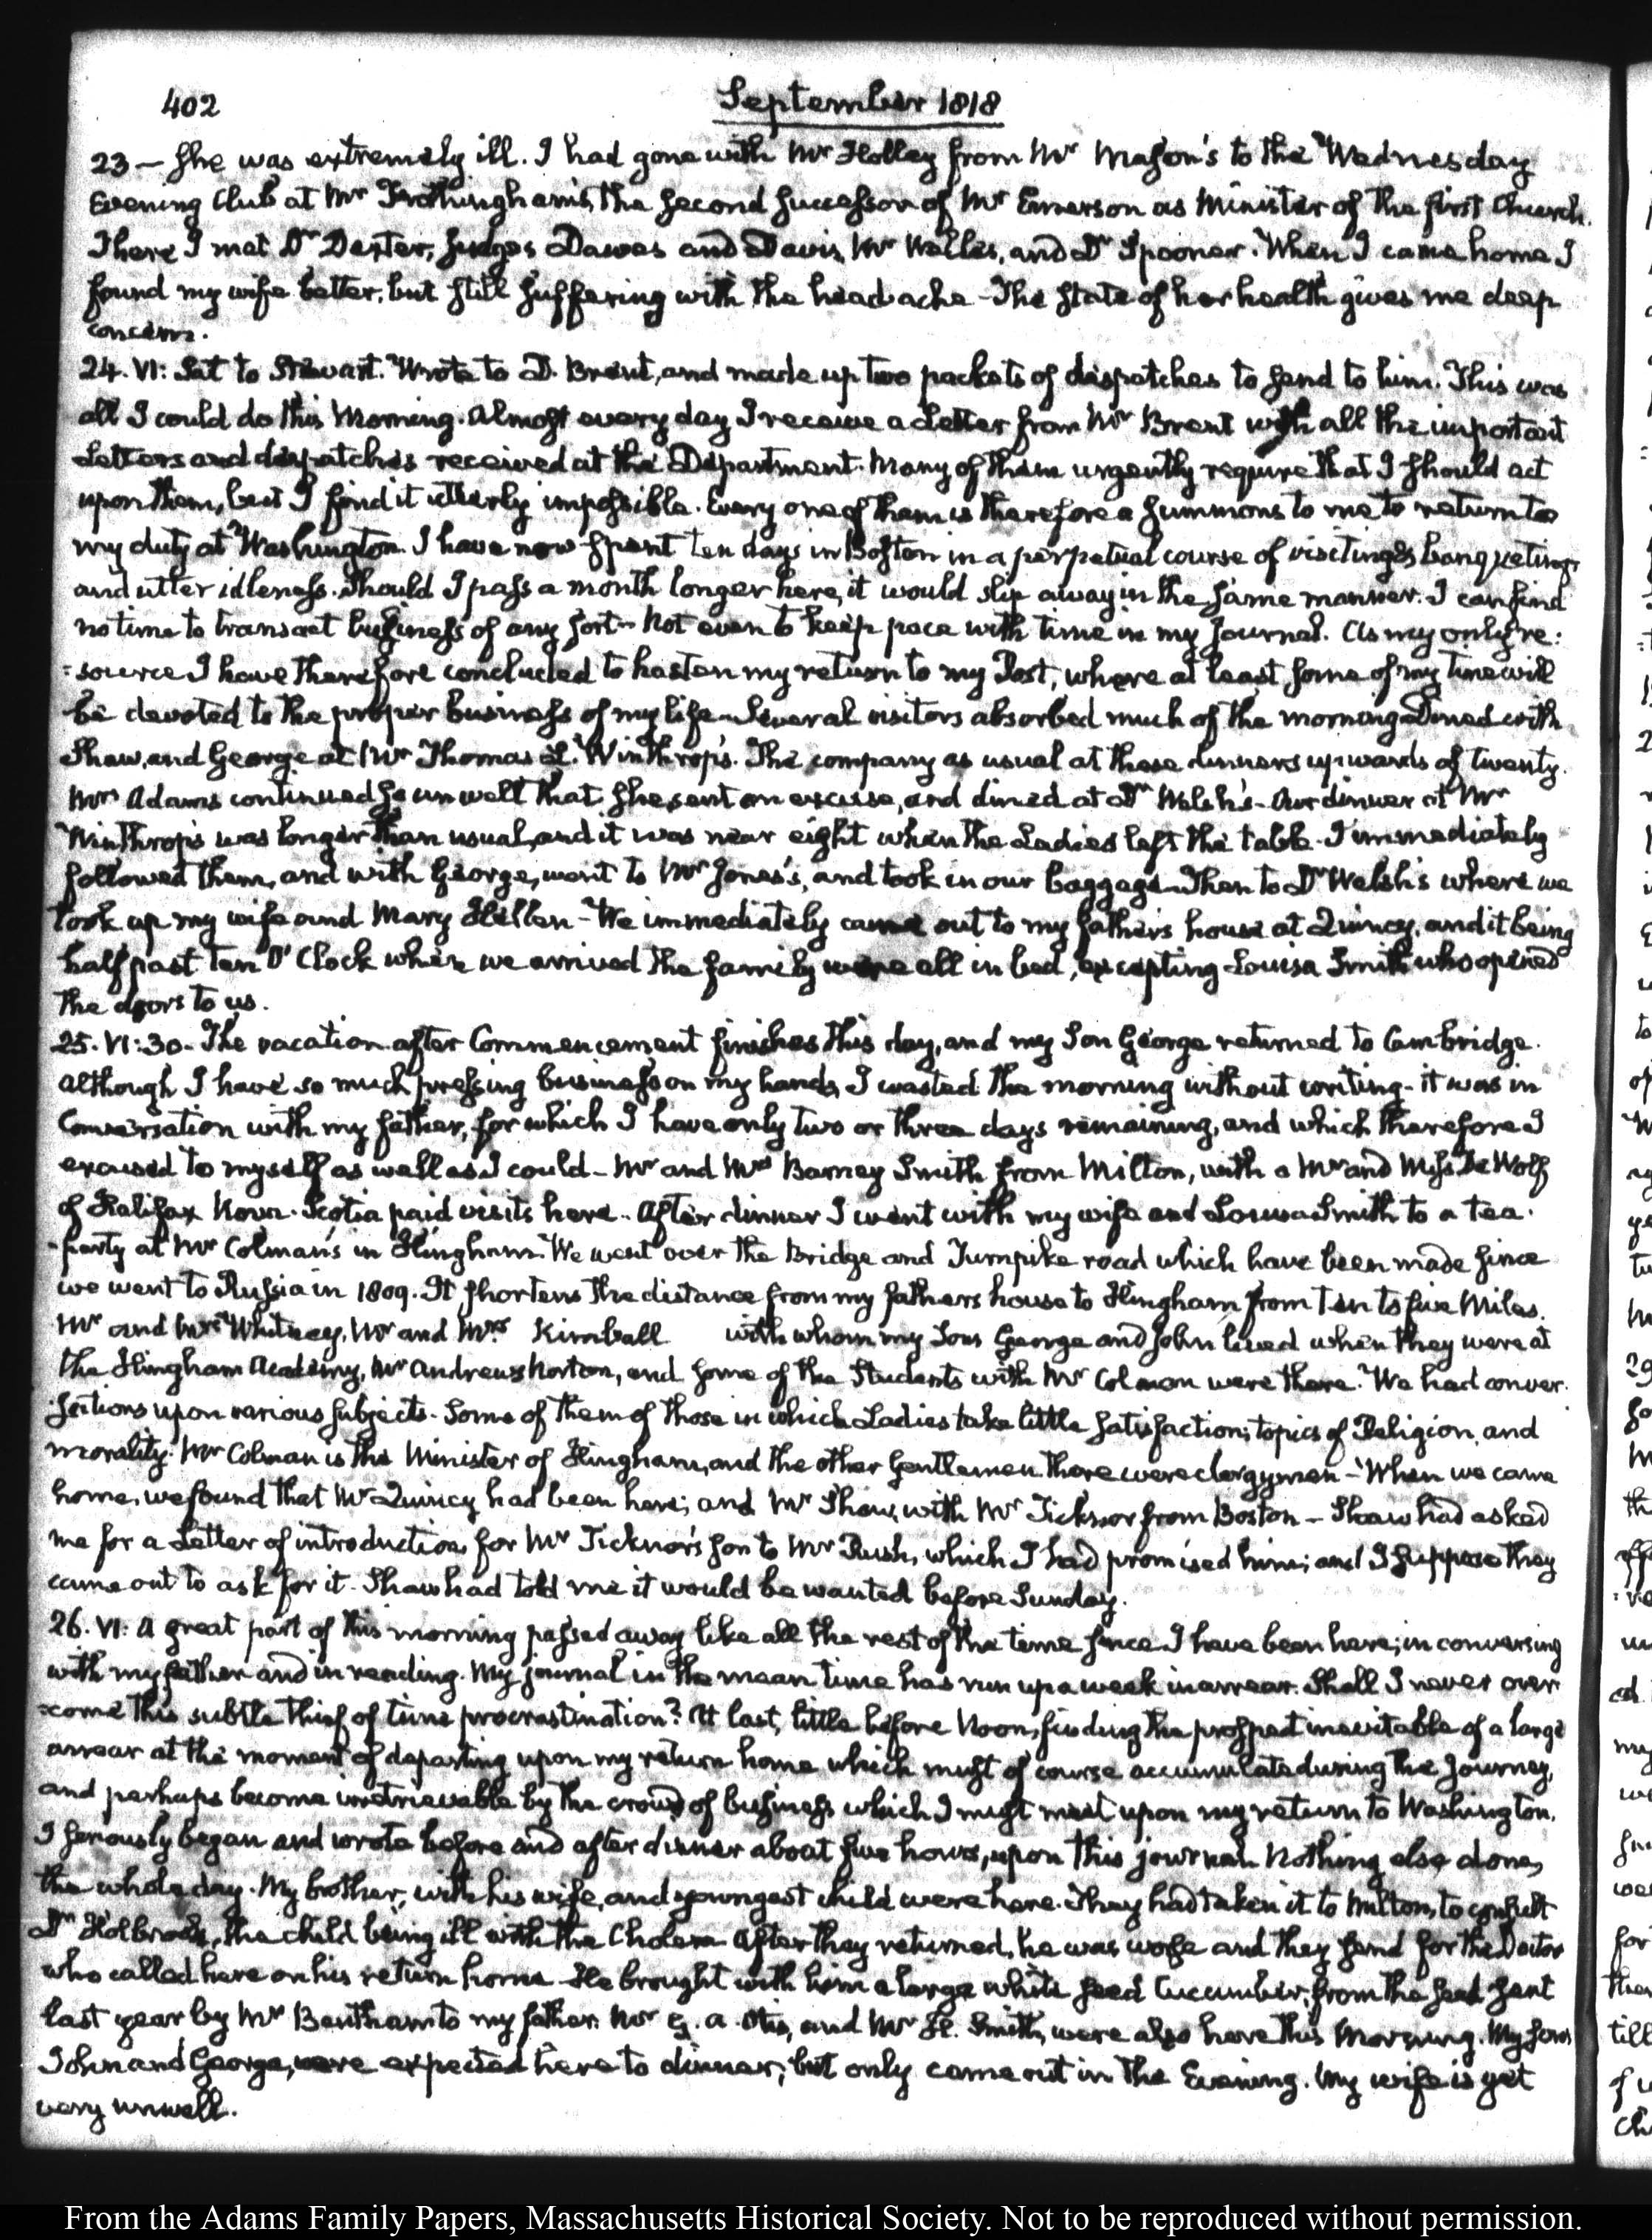 402
September 1818
23 — She was extremely ill. I had gone with Mr Holley from Mr Mason's to the Wednesday
Evening Club at Mr Frothingham's, the second successor of Mr Emerson as Minister of the first Church.
There I met Dr Dexter, Judges Dawes and Davis, Mr Wailes, and Dr Spooner. When I came home I
found my wife better, but still suffering with the head-ache - The state of her health gives me deep
concern.
24. VI: Sat to Stewart. Wrote to D. Brent, and made up two packets of dispatches to send to him. This was
all I could do this Morning. Almost every day I receive a Letter from Mr Brent with all the important
Letters and dispatches received at the Department. Many of them urgently require that I should act
upon them, but I find it utterly impossible. Every one of them is therefore a summons to me to return to
my duty at Washington. I have now spent ten days in Boston in a perpetual course of visitings banquetings
and utter idleness. Should I pass a month longer here, it would slip away in the same manner. I can find
no time to transact business of any sort - Not even to keep pace with time in my Journal. As my only re:
:source I have therefore concluded to hasten my return to my Post, where at least some of my time will
be devoted to the proper business of my life - Several visitors absorbed much of the morning - Dined with
Shaw, and George at Mr Thomas L. Winthrop's. The company as usual at these dinners upwards of twenty.
Mrs Adams continued so unwell that she sent an excuse, and dined at Dr Welsh's - Our dinner at Mr
Winthrop's was longer than usual, and it was near eight when the Ladies left the table - I immediately
followed them, and with George, went to Mr Jones's, and took in our baggage - Then to Dr Welsh's where we
took up my wife and Mary Hellen - We immediately came out to my father's house at Quincy, and it being
half past ten O'Clock when we arrived the family were all in bed, excepting Louisa Smith who opened
the doors to us.
25. VI:30. The vacation after Commencement finishes this day, and my Son George returned to Cambridge.
Although I have so much pressing business on my hands, I wasted the morning without writing - it was in
Conversation with my father, for which I have only two or three days remaining, and which therefore I
excused to myself as well as I could - Mr and Mrs Barney Smith from Milton, with a Mr and Miss De Wolf
of Halifax Nova-Scotia paid visits here. After dinner I went with my wife and Louisa Smith to a tea-
-party at Mr Colman's in Hingham. We went over the Bridge and Turnpike road which have been made since
we went to Russia in 1809. It shortens the distance from my fathers house to Hingham from ten to five Miles.
Mr and Mrs Whitney, Mr and Mrs Kimball with whom my Sons George and John lived when they were at
the Hingham Academy, Mr Andrews Norton, and some of the Students with Mr Colman were there. We had conver-
-sations upon various subjects. Some of them of those in which Ladies take little satisfaction; topics of Religion, and
morality. Mr Colman is the Minister of Hingham, and the other Gentlemen there were clergymen - When we came
home, we found that Mr Quincy had been here; and Mr Shaw, with Mr Ticknor from Boston - Shaw had asked
me for a Letter of introduction for Mr Ticknor's son to Mr Rush, which I had promised him; and I suppose they
came out to ask for it. Shaw had told me it would be wanted before Sunday.
26. VI: A great part of this morning passed away like all the rest of the time since I have been here; in conversing
with my father and in reading. My journal in the mean time has run up a week in arrear. Shall I never over
=come this subtle thief of time procrastination? At last, little before Noon, finding the prospect inevitable of a large
arrear at the moment of departing upon my return home which must of course accumulate during the Journey,
and perhaps become irretrievable by the crowd of business which I must meet upon my return to Washington.
I seriously began and wrote before and after dinner about five hours, upon this journal. Nothing else done,
the whole day. My brother, with his wife, and youngest child were here. They had taken it to Milton, to consult
Dr Holbrook, the child being ill with the Cholera. After they returned, he was worse and they send for the Doctor
who called here on his return home - He brought with him a large white seed Cucumber, from the seed sent
last year by Mr Bentham to my father. Mr G. A. Otis, and Mr H. Smith, were also here this Morning. My Sons
John and George, were expected here to dinner; but only came out in the Evening. My wife is yet
very unwell.
From the Adams Family Papers, Massachusetts Historical Society. Not to be reproduced without permission.